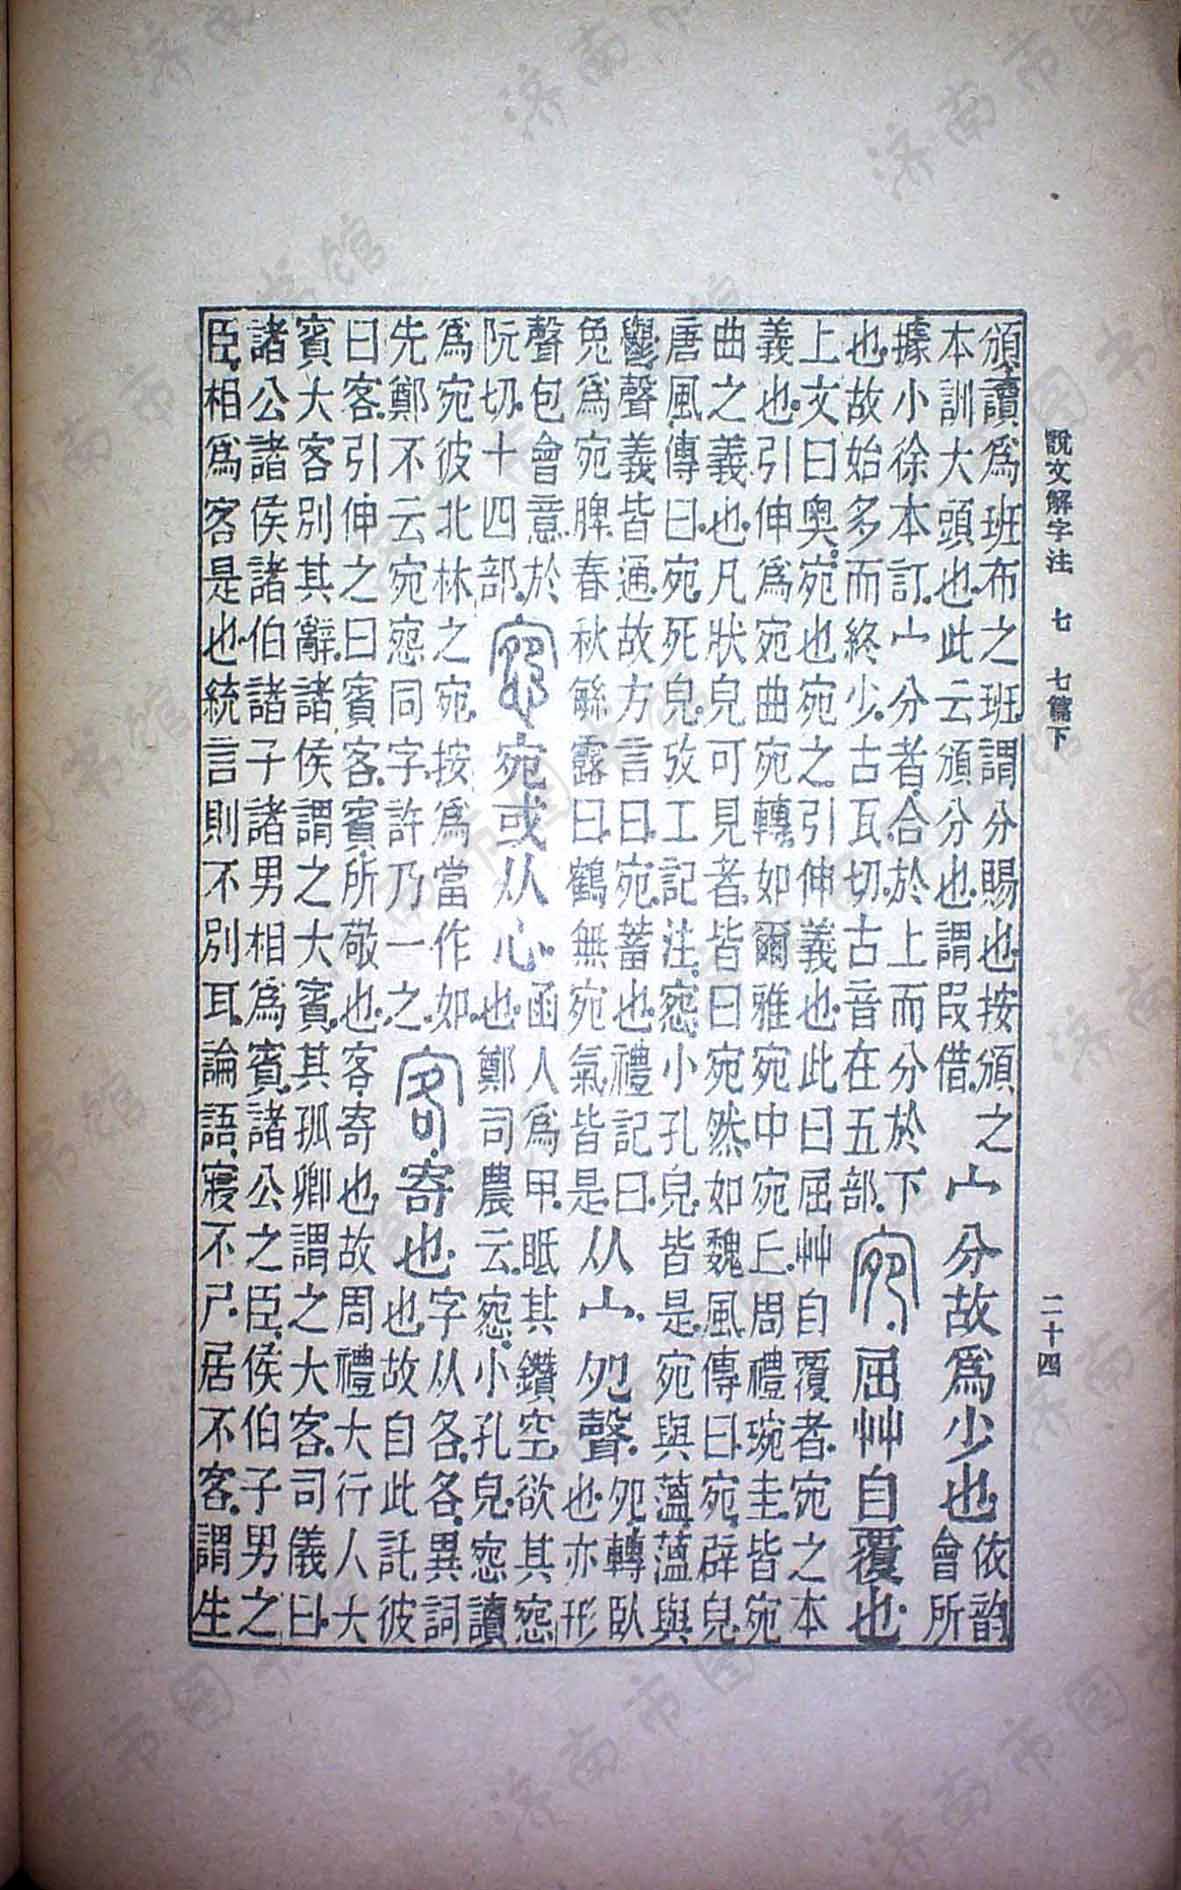 說文解字注 七 七篇下
二十四
頒讀爲班布之班謂分賜也按頒之
本訓大頭也此云頒分也謂叚借
宀分故爲少也
依韵
會所
據小徐本訂宀分者合於上而分於下
也故始多而終少古瓦切古音在五部
宛屈艸自覆也
上文曰奥宛也宛之引伸義也此曰屈艸自覆者宛之本
義也引伸爲宛曲宛轉如爾雅宛中宛丘周禮琬圭皆宛
曲之義也凡狀皃可見者皆曰宛然如魏風傳曰宛辟皃
唐風傳曰宛死皃攷工記注惌小孔皃皆是宛與薀薀與
鬱聲義皆通故方言曰宛蓄也禮記曰
兔爲宛脾春秋緐露曰鶴無宛氣皆是
从宀夗聲
夗轉臥
也亦形
聲包會意於
阮切十四部
惌宛或从心
函人爲甲眂其鑽空欲其惌
也鄭司農云惌小孔皃惌讀
爲宛彼北林之宛按爲當作如
先鄭不云宛惌同字許乃一之
客寄也
字从各各異詞
也故自此託彼
曰客引伸之曰賓客賓所敬也客寄也故周禮大行人大
賓大客別其辭諸侯謂之大賓其孤卿謂之大客司儀曰
諸公諸侯諸伯諸子諸男相爲賓諸公之臣侯伯子男之
臣相爲客是也統言則不別耳論語寢不尸居不客謂生
济南市图书馆